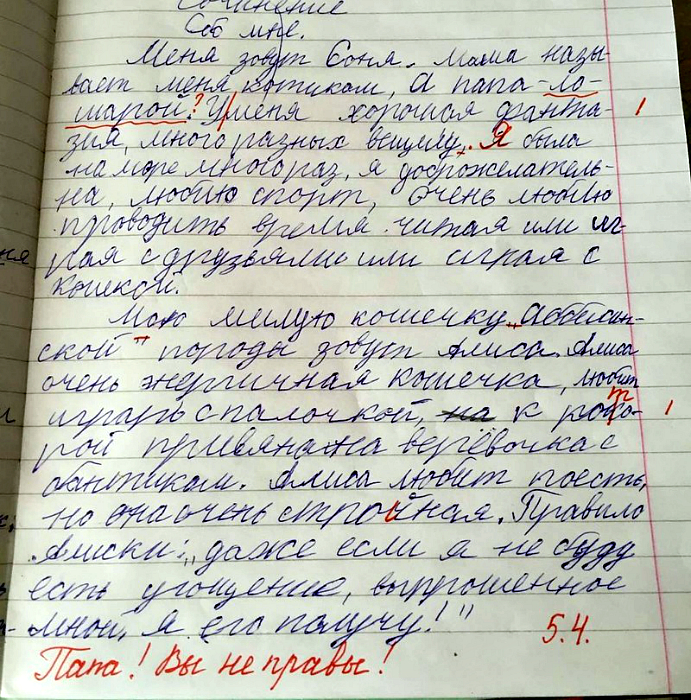 Сочинение
Обо мне.
Меня зовут Соня. Мама назы-
вает меня котиком, а папа - ло-
шарой? У меня хорошая фанта-
зия, много разных вещему. Я была
на море много раз, я доброжелатель-
на, люблю спорт, очень люблю
проводить время читая или иг-
рая с друзьями или играя с
кошкой.
Мою милую кошечку „Аббисин-
ской" породы зовут Алиса. Алиса
очень энергичная кошечка, любит
играть с палочкой, на к кото-
рой привязана верёвочка с
бантиком. Алиса любит поесть,
но она очень стройная. Правило
Алиски: „даже если я не буду
есть угощение, выпрошенное
мной, я его получу!"
5.4.
Папа! Вы не правы!